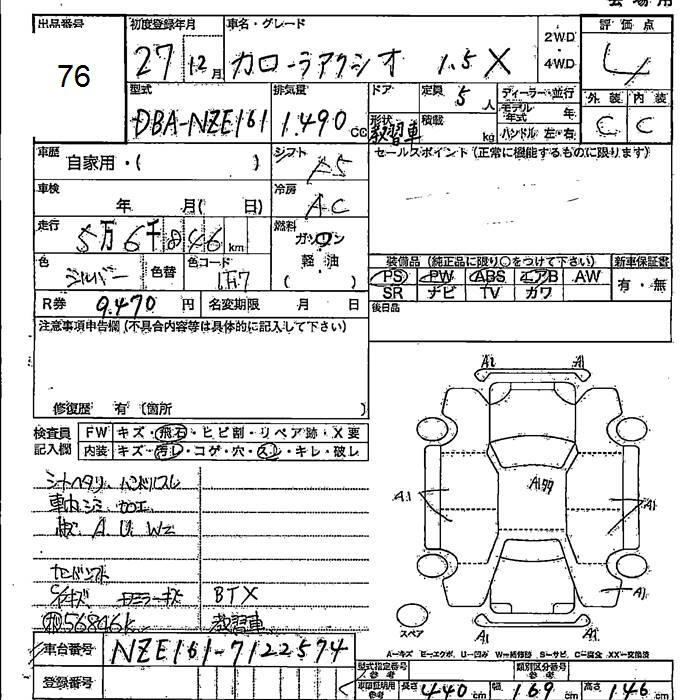 会場用
出品番号 初度登録年月 車名・グレード 評価点
76 27 12月 カローラアクシオ 1.5X 2WD・4WD 4
型式 排気量 ドア 定員 5人 ディーラー・並行 外装 内装
DBA-NZE161 1.490cc 形状 教習車 積載 kg モデル年式 年 C C
ハンドル 左・右
車歴 自家用・( ) シフト A5 セールスポイント(正常に機能するものに限ります)
車検 年 月( 日) 冷房 AC
走行 5万6千846km 燃料 ガソリン
軽・油
( )
色 シルバー 色替 色コード 1H7
装備品(純正品に限り○をつけて下さい) 新車保証書
PS PW ABS エアB AW 有・無
SR ナビ TV カワ
R券 9.470円 名変期限 月 日 後日品
注意事項申告欄(不具合内容等は具体的に記入して下さい)
修復歴 有(箇所 )
検査員 FW キズ・飛石・ヒビ割・リペア跡・X要
記入欄 内装 キズ・汚レ・コゲ・穴・スレ・キレ・破レ
シートヘタリ ハンドルスレ
車内シミ 加工
A U W2
BTX
56846k 教習車
A1 A1
A1 A99 A1
A1
スペア A1 A1
A=キズ E=エクボ U=凹み W=補修跡 S=サビ C=腐食 XX=交換済
車台番号 NZE161-7122574
型式指定番号 類別区分番号
登録番号
長さ 440cm 幅 169cm 高さ 146cm